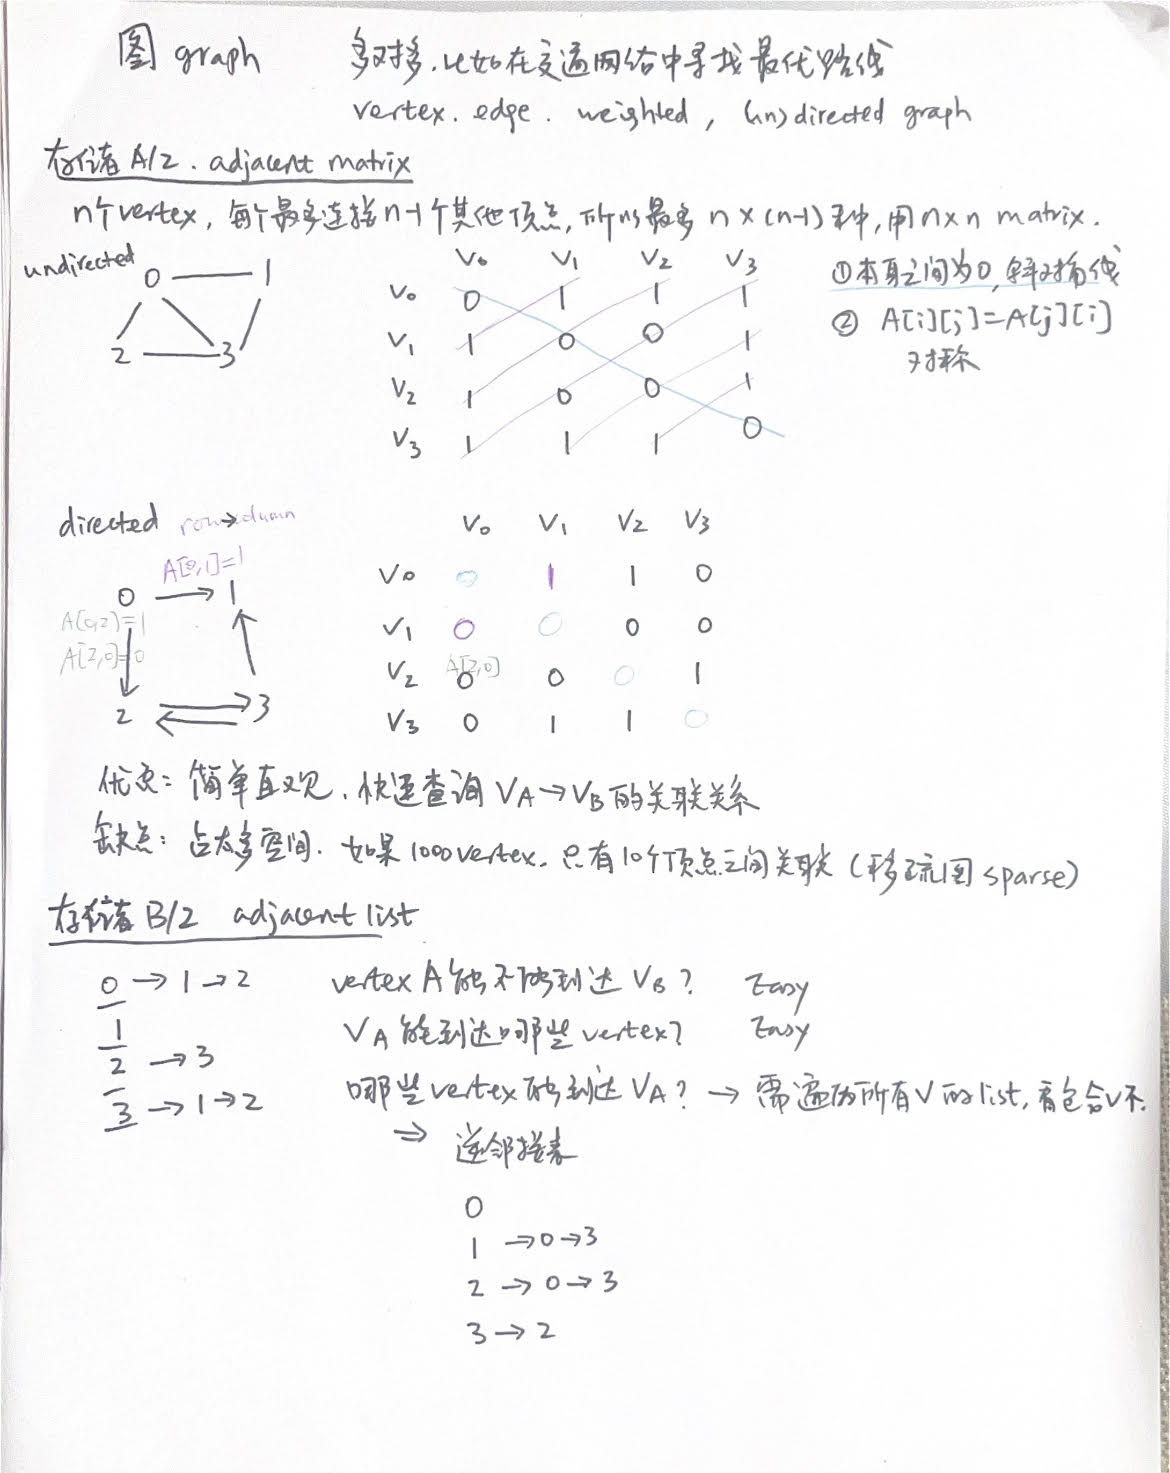 图 graph 多对多.比如在交通网络中寻找最优路线
vertex. edge. weighted, (un)directed graph
存储 A/2. adjacent matrix
n个vertex, 每个最多连接n-1个其他顶点, 所以最多 n×(n-1)种, 用n×n matrix.
undirected
0 1
2 3
V0 V1 V2 V3
V0 0 1 1 1
V1 1 0 0 1
V2 1 0 0 1
V3 1 1 1 0
①本身之间为0, 斜对角线
② A[i][j]=A[j][i]
对称
directed row→column
A[0,1]=1
0 → 1
A[0,2]=1
A[2,0]=0
2 3
V0 V1 V2 V3
V0 0 1 1 0
V1 0 0 0 0
A[2,0]
V2 0 0 0 1
V3 0 1 1 0
优点: 简单直观, 快速查询 VA→VB的关联关系
缺点: 占太多空间. 如果1000vertex. 只有10个顶点之间关联 (移疏图 sparse)
存储 B/2 adjacent list
0 → 1 → 2
1
2 → 3
3 → 1 → 2
vertex A能不能到达 VB? Easy
VA能到达哪些 vertex? Easy
哪些vertex能到达 VA? → 需遍历所有V的list, 看包含V不.
⇒ 逆邻接表
0
1 →0→3
2 → 0→ 3
3 → 2